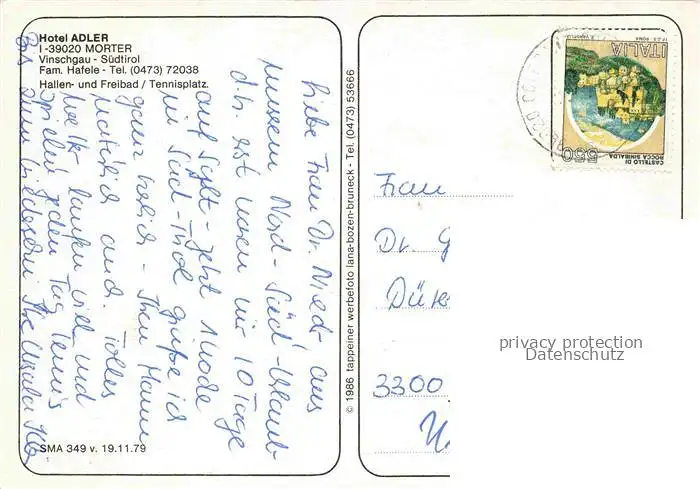 Hotel ADLER
I-39020 MORTER
Vinschgau - Südtirol
Fam. Hafele - Tel. (0473) 72038
Hallen- und Freibad / Tennisplatz.
Liebe Frau Dr. Nied - aus
unserem Nord-Süd-Urlaub
d.h. erst waren wir 10 Tage
auf Sylt - jetzt 1 Woche
in Süd-Tirol grüße ich
ganz herzlich - Ihren Mann
natürlich auch. Tolles
Wetter laufen viel und
spielen jeden Tag Tennis
Bis zum Wiedersehn Ihre Ursula
SMA 349 v. 19.11.79
© 1986 tappeiner werbefoto lana-bozen-bruneck - Tel. (0473) 53666
ITALIA
550
CASTELLO DI
ROCCA SINIBALDA
Frau
Dr. G
Düre
3300
privacy protection
Datenschutz